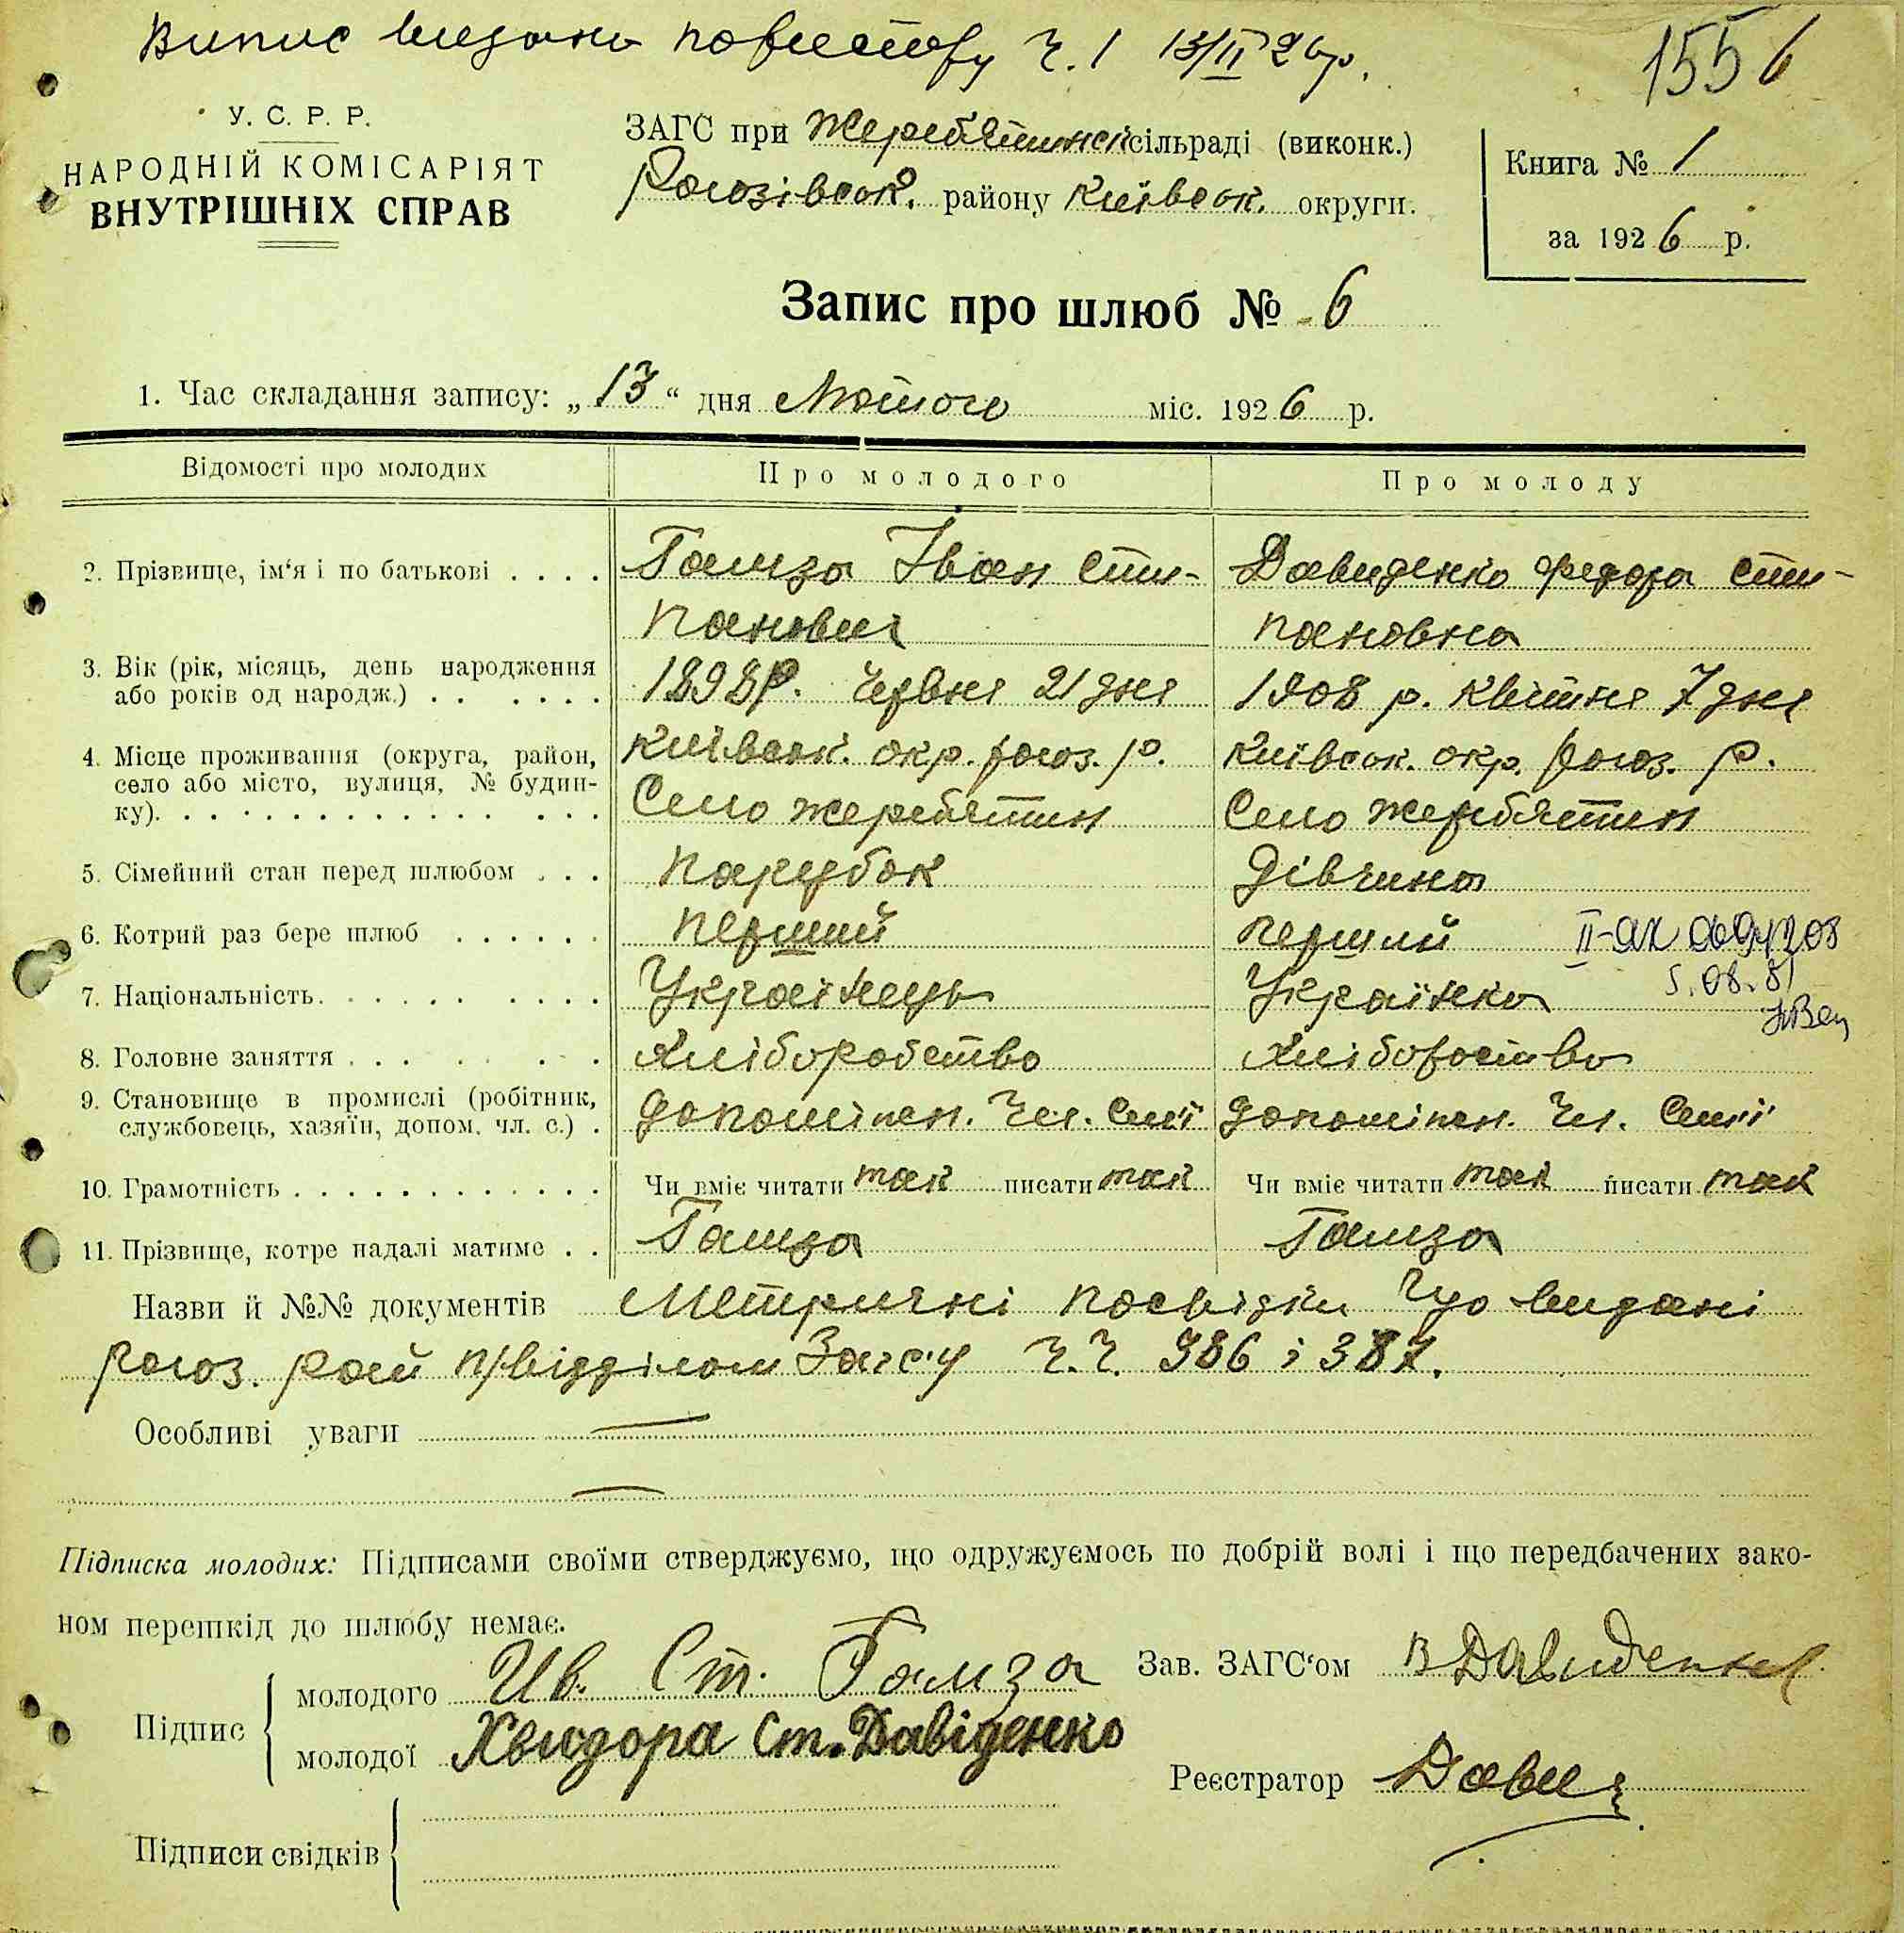 Випис видано по реєстру Ч. 1 13/II 26р.
155 6
У. С. Р. Р.
НАРОДНІЙ КОМІСАРІЯТ
ВНУТРІШНІХ СПРАВ
ЗАГС при Жеребятинск сільраді (виконк.)
Рогозівськ. району Київськ. округи.
Книга № 1
за 1926 р.
Запис про шлюб № 6
1. Час складання запису: „13“ дня Лютого міс. 1926 р.
Відомості про молодих Про молодого Про молоду
2. Прізвище, ім‘я і по батькові . . . . Гамза Іван Сти- Давиденко Федора Сти-
панович пановна
3. Вік (рік, місяць, день народження 1898р. Червня 21 дня 1908 р. Квітня 7 дня
або років од народж.) . . . . . .
4. Місце проживання (округа, район, Київськ. окр. рогоз. р. Київськ. окр. рогоз. р.
село або місто, вулиця, № будин- Село Жеребятин Село Жеребятин
ку). . . . . . . . . . . . . . . .
5. Сімейний стан перед шлюбом . . . Парубок Дівчина
6. Котрий раз бере шлюб . . . . . . перший перший II-
7. Національність. . . . . . . . . . Українець Українка 5.08.81
8. Головне заняття . . . . . . . Хліборобство Хліборобство
9. Становище в промислі (робітник, допоміжн. Чл. Семї допоміжн. Чл. Семї
службовець, хазяїн, допом. чл. с.) .
10. Грамотність . . . . . . . . . . . . . Чи вміє читати так писати так Чи вміє читати так писати так
11. Прізвище, котре надалі матиме . . Гамза Гамза
Назви й №№ документів Метричні посвідки Що видані
рогоз. рай п/відділом Загсу Ч.Ч. 386 і 387.
Особливі уваги —
—
Підписка молодих: Підписами своїми стверджуємо, що одружуємось по добрій волі і що передбачених зако-
ном перешкід до шлюбу немає.
Підпис
молодого Ив. Ст. Гамза
молодої Хвидора Ст. Давіденко
Зав. ЗАГС‘ом В Давиденко
Реєстратор Дави
Підписи свідків